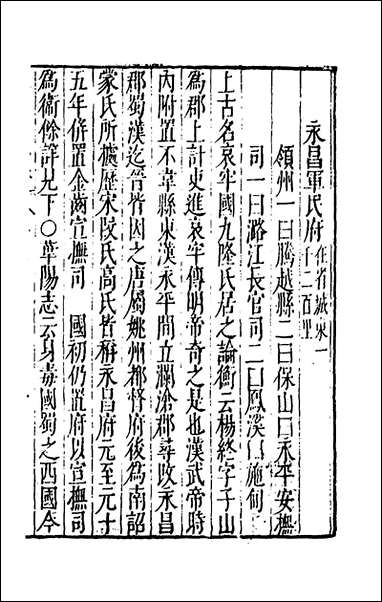 永昌軍民府在省城東一
千二百里
領州一曰騰越縣二曰保山曰永平安撫
司一曰潞江長官司二曰鳳溪曰施甸
上古名哀牢國九隆氏居之論衡云楊終字子山
爲郡上計吏進哀牢傳明帝奇之是也漢武帝時
內附置不韋縣東漢永平間立瀾滄郡尋改永昌
郡蜀漢迄晉皆因之唐屬姚州都督府後爲南詔
蒙氏所據歷宋段氏高氏皆稱永昌府元至元十
五年併置金齒宣撫司 國初仍置府以宣撫司
爲衛餘詳見下○華陽志云身毒國蜀之西國今